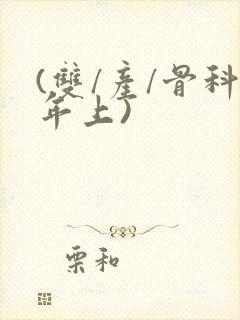 (雙/産/骨科
年上)
栗和